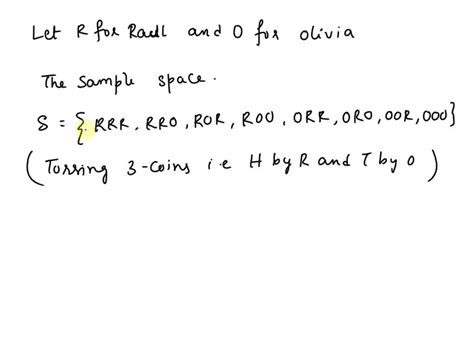 Let R for Raul and O for olivia
The sample space.
S = { RRR, RRO, ROR, ROO, ORR, ORO, OOR, OOO}
( Tossing 3-coins i.e H by R and T by O )